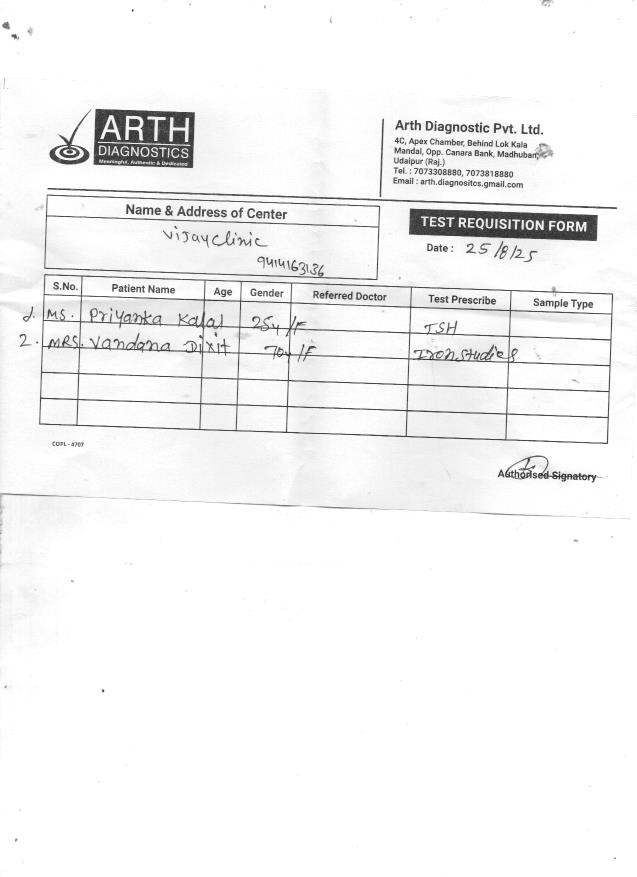 ARTH
DIAGNOSTICS
Meaningful, Authentic & Dedicated
Arth Diagnostic Pvt. Ltd.
4C, Apex Chamber, Behind Lok Kala
Mandal, Opp. Canara Bank, Madhuban,
Udaipur (Raj.)
Tel. : 7073308880, 7073818880
Email : arth.diagnositcs.gmail.com
Name & Address of Center
Vijay clinic
9414163136
TEST REQUISITION FORM
Date : 25/8/25
S.No. Patient Name Age Gender Referred Doctor Test Prescribe Sample Type
1. MS. Priyanka Kalal 25y/F TSH
2. MRS. Vandana Dixit 70y/F Iron studies
COPL - 4707
Authorised Signatory